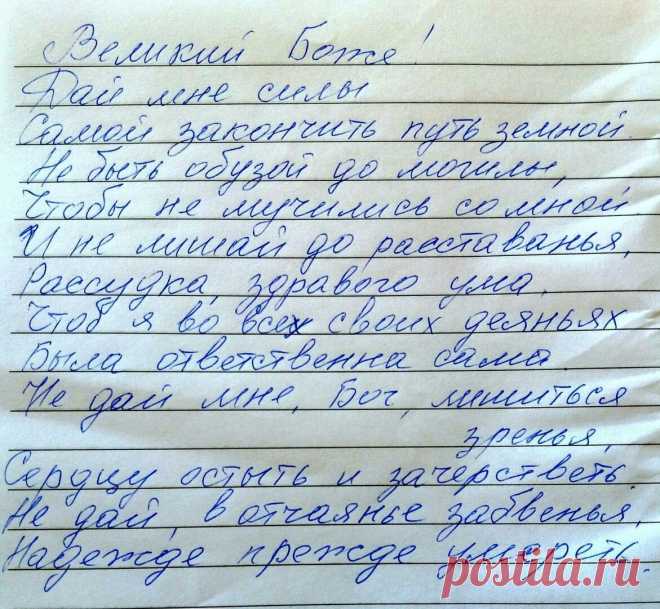 Великий Боже!
Дай мне силы
Самой закончить путь земной.
Не быть обузой до могилы,
Чтобы не мучились со мной.
И не лишай до расставанья,
Рассудка, здравого ума.
Чтоб я во всех своих деяньях
Была ответственна сама.
Не дай мне, Бог, лишиться
зренья,
Сердцу остыть и зачерстветь.
Не дай, в отчаянье забвенья,
Надежде прежде умереть.
postila.ru